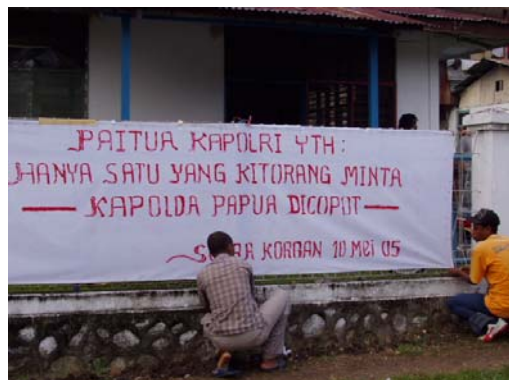 PAITUA KAPOLRI YTH:
HANYA SATU YANG KITORANG MINTA
— KAPOLDA PAPUA DICOPOT —
KORBAN 10 MEI 05